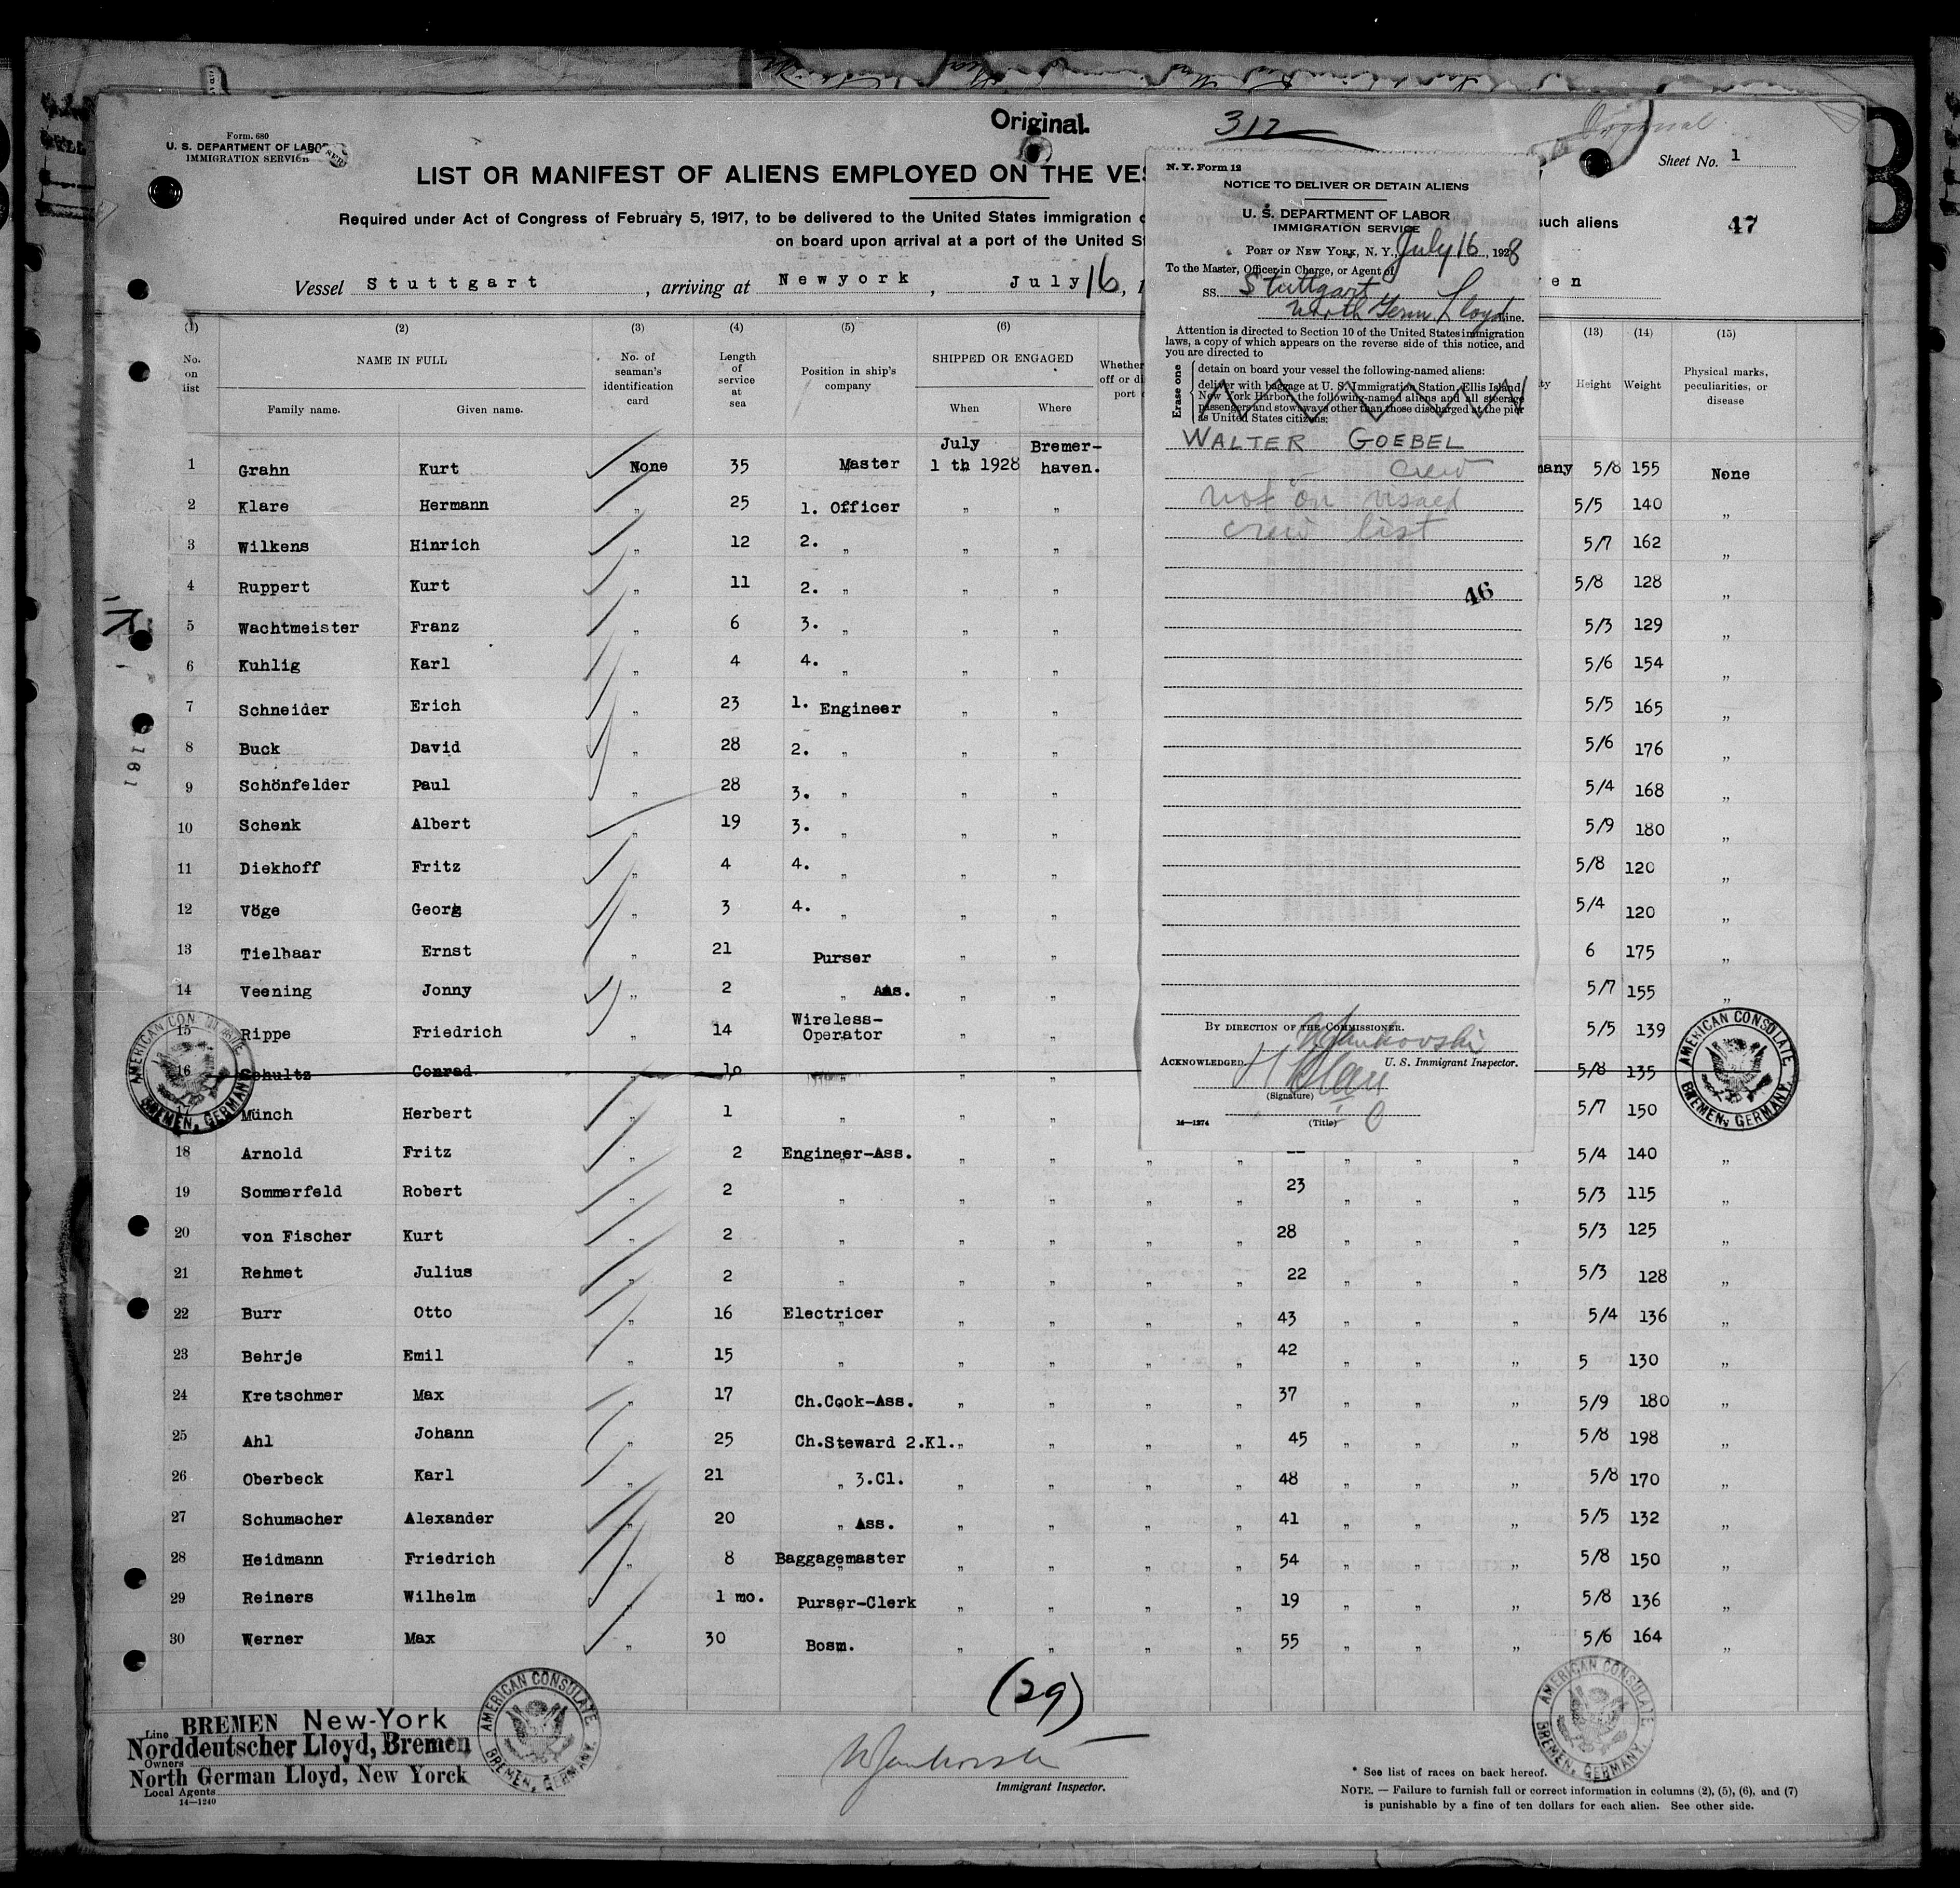 Original.
312
Original
Form. 680
U. S. DEPARTMENT OF LABOR
IMMIGRATION SERVICE
Sheet No. 1
LIST OR MANIFEST OF ALIENS EMPLOYED ON THE VES
Required under Act of Congress of February 5, 1917, to be delivered to the United States immigration
such aliens
47
on board upon arrival at a port of the United S
Vessel Stuttgart, arriving at Newyork, July 16,
en
(1) (2) (3) (4) (5) (6) (13) (14) (15)
No. on list
NAME IN FULL
Family name. Given name.
No. of seaman's identification card
Length of service at sea
Position in ship's company
SHIPPED OR ENGAGED
When Where
Whether
off or di
port
Height Weight
Physical marks, peculiarities, or disease
1 Grahn Kurt None 35 Master July 1 th 1928 Bremer-haven. many 5/8 155 None
2 Klare Hermann „ 25 1. Officer „ „ 5/5 140 „
3 Wilkens Hinrich „ 12 2. „ „ „ 5/7 162 „
4 Ruppert Kurt „ 11 2. „ „ „ 5/8 128 „
5 Wachtmeister Franz „ 6 3. „ „ „ 5/3 129 „
6 Kuhlig Karl „ 4 4. „ „ „ 5/6 154 „
7 Schneider Erich „ 23 1. Engineer „ „ 5/5 165 „
8 Buck David „ 28 2. „ „ „ 5/6 176 „
9 Schönfelder Paul „ 28 3. „ „ „ 5/4 168 „
10 Schenk Albert „ 19 3. „ „ „ 5/9 180 „
11 Diekhoff Fritz „ 4 4. „ „ „ 5/8 120 „
12 Vöge Georg „ 3 4. „ „ „ 5/4 120 „
13 Tielbaar Ernst „ 21 Purser „ „ 6 175 „
14 Veening Jonny „ 2 „ Ass. „ „ 5/7 155 „
15 Rippe Friedrich „ 14 Wireless-Operator „ „ 5/5 139 „
16 Schultz Conrad 10 „ „ „ 5/8 135
Münch Herbert „ 1 „ „ „ 5/7 150 „
18 Arnold Fritz „ 2 Engineer-Ass. „ „ „ „ „ „ „ 5/4 140 „
19 Sommerfeld Robert „ 2 „ „ „ „ „ 23 „ „ „ 5/3 115 „
20 von Fischer Kurt „ 2 „ „ „ „ „ 28 „ „ „ 5/3 125 „
21 Rehmet Julius „ 2 „ „ „ „ „ 22 „ „ „ 5/3 128 „
22 Burr Otto „ 16 Electricer „ „ „ „ 43 „ „ „ 5/4 136 „
23 Behrje Emil „ 15 „ „ „ „ „ 42 „ „ „ 5 130 „
24 Kretschmer Max „ 17 Ch.Cook-Ass. „ „ „ „ 37 „ „ „ 5/9 180 „
25 Ahl Johann „ 25 Ch.Steward 2.Kl. „ „ „ „ 45 „ „ „ 5/8 198 „
26 Oberbeck Karl „ 21 „ 3.Cl. „ „ „ „ 48 „ „ „ 5/8 170 „
27 Schumacher Alexander „ 20 „ Ass. „ „ „ „ 41 „ „ „ 5/5 132 „
28 Heidmann Friedrich „ 8 Baggagemaster „ „ „ „ 54 „ „ „ 5/8 150 „
29 Reiners Wilhelm „ 1 mo. Purser-Clerk „ „ „ „ 19 „ „ „ 5/8 136 „
30 Werner Max „ 30 Bosm. „ „ „ „ 55 „ „ „ 5/6 164 „
(29)
N. Y. Form 12
NOTICE TO DELIVER OR DETAIN ALIENS
U. S. DEPARTMENT OF LABOR
IMMIGRATION SERVICE
PORT OF NEW YORK, N. Y., July 16, 1928
To the Master, Officer in Charge, or Agent of
SS. Stuttgart
North Germ. Lloyd Line.
Attention is directed to Section 10 of the United States immigration
laws, a copy of which appears on the reverse side of this notice, and
you are directed to
Erase one
detain on board your vessel the following-named aliens:
deliver with baggage at U. S. Immigration Station, Ellis Island,
New York Harbor, the following-named aliens and all steerage
passengers and stowaways other than those discharged at the pier
as United States citizens:
WALTER GOEBEL
crew
not on visaed
crew list
46
BY DIRECTION OF THE COMMISSIONER.
ACKNOWLEDGED.
U. S. Immigrant Inspector.
(Signature)
(Title)
14—1274
161
AMERICAN CONSULATE
BREMEN, GERMANY.
AMERICAN CONSULATE
BREMEN, GERMANY.
AMERICAN CONSULATE
BREMEN, GERMANY.
AMERICAN CONSULATE
BREMEN, GERMANY.
Line BREMEN New-York
Norddeutscher Lloyd, Bremen
Owners
North German Lloyd, New Yorck
Local Agents
14—1240
Immigrant Inspector.
* See list of races on back hereof.
NOTE. — Failure to furnish full or correct information in columns (2), (5), (6), and (7)
is punishable by a fine of ten dollars for each alien. See other side.